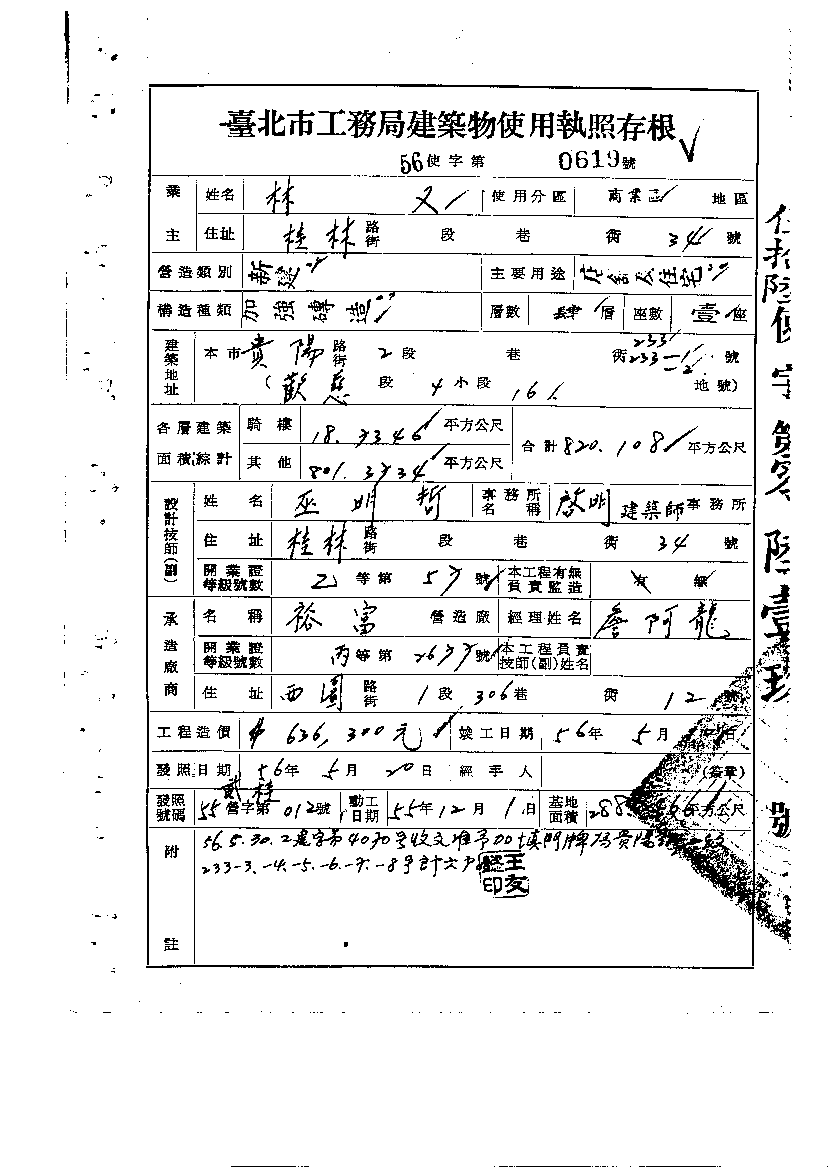 臺北市工務局建築物使用執照存根
56使字第 0619號
業主 姓名 林 又 使用分區 商業區 地區
住址 桂林 路街 段 巷 街 34 號
營造類別 新建 主要用途 店舖及住宅
構造種類 加強磚造 層數 肆 層 座數 壹 座
建築地址 本市 貴陽 路街 2段 巷 街 233 233-1 -2 號
(歡慈 段 4小段 161 地號)
各層建築面積綜計 騎樓 18.7346 平方公尺 合計 820.1081 平方公尺
其他 801.3734 平方公尺
設計技師(副) 姓名 巫明哲 事務所名稱 啟明 建築師事務所
住址 桂林 路街 段 巷 街 34 號
開業證等級號數 乙 等第 57 號 本工程有無負責監造 有 無
承造廠商 名稱 裕富 營造廠 經理姓名 詹阿龍
開業證等級號數 丙等第 2677號 本工程負責技師(副)姓名
住址 西園 路街 1段 306巷 街 12 號
工程造價 $636,300元 竣工日期 56年 5月 日
發照日期 56年 5月 20日 經手人 (簽章)
發照號碼 55營字第 貳桂 012號 動工日期 55年12月1日 基地面積 288. 平方公尺
附註 56.5.30.2建字第4070号收文准予加填門牌為貴陽
233-3.-4.-5.-6.-7.-8号計六戶
王友
印
伍拾陸使字第零陸壹玖號